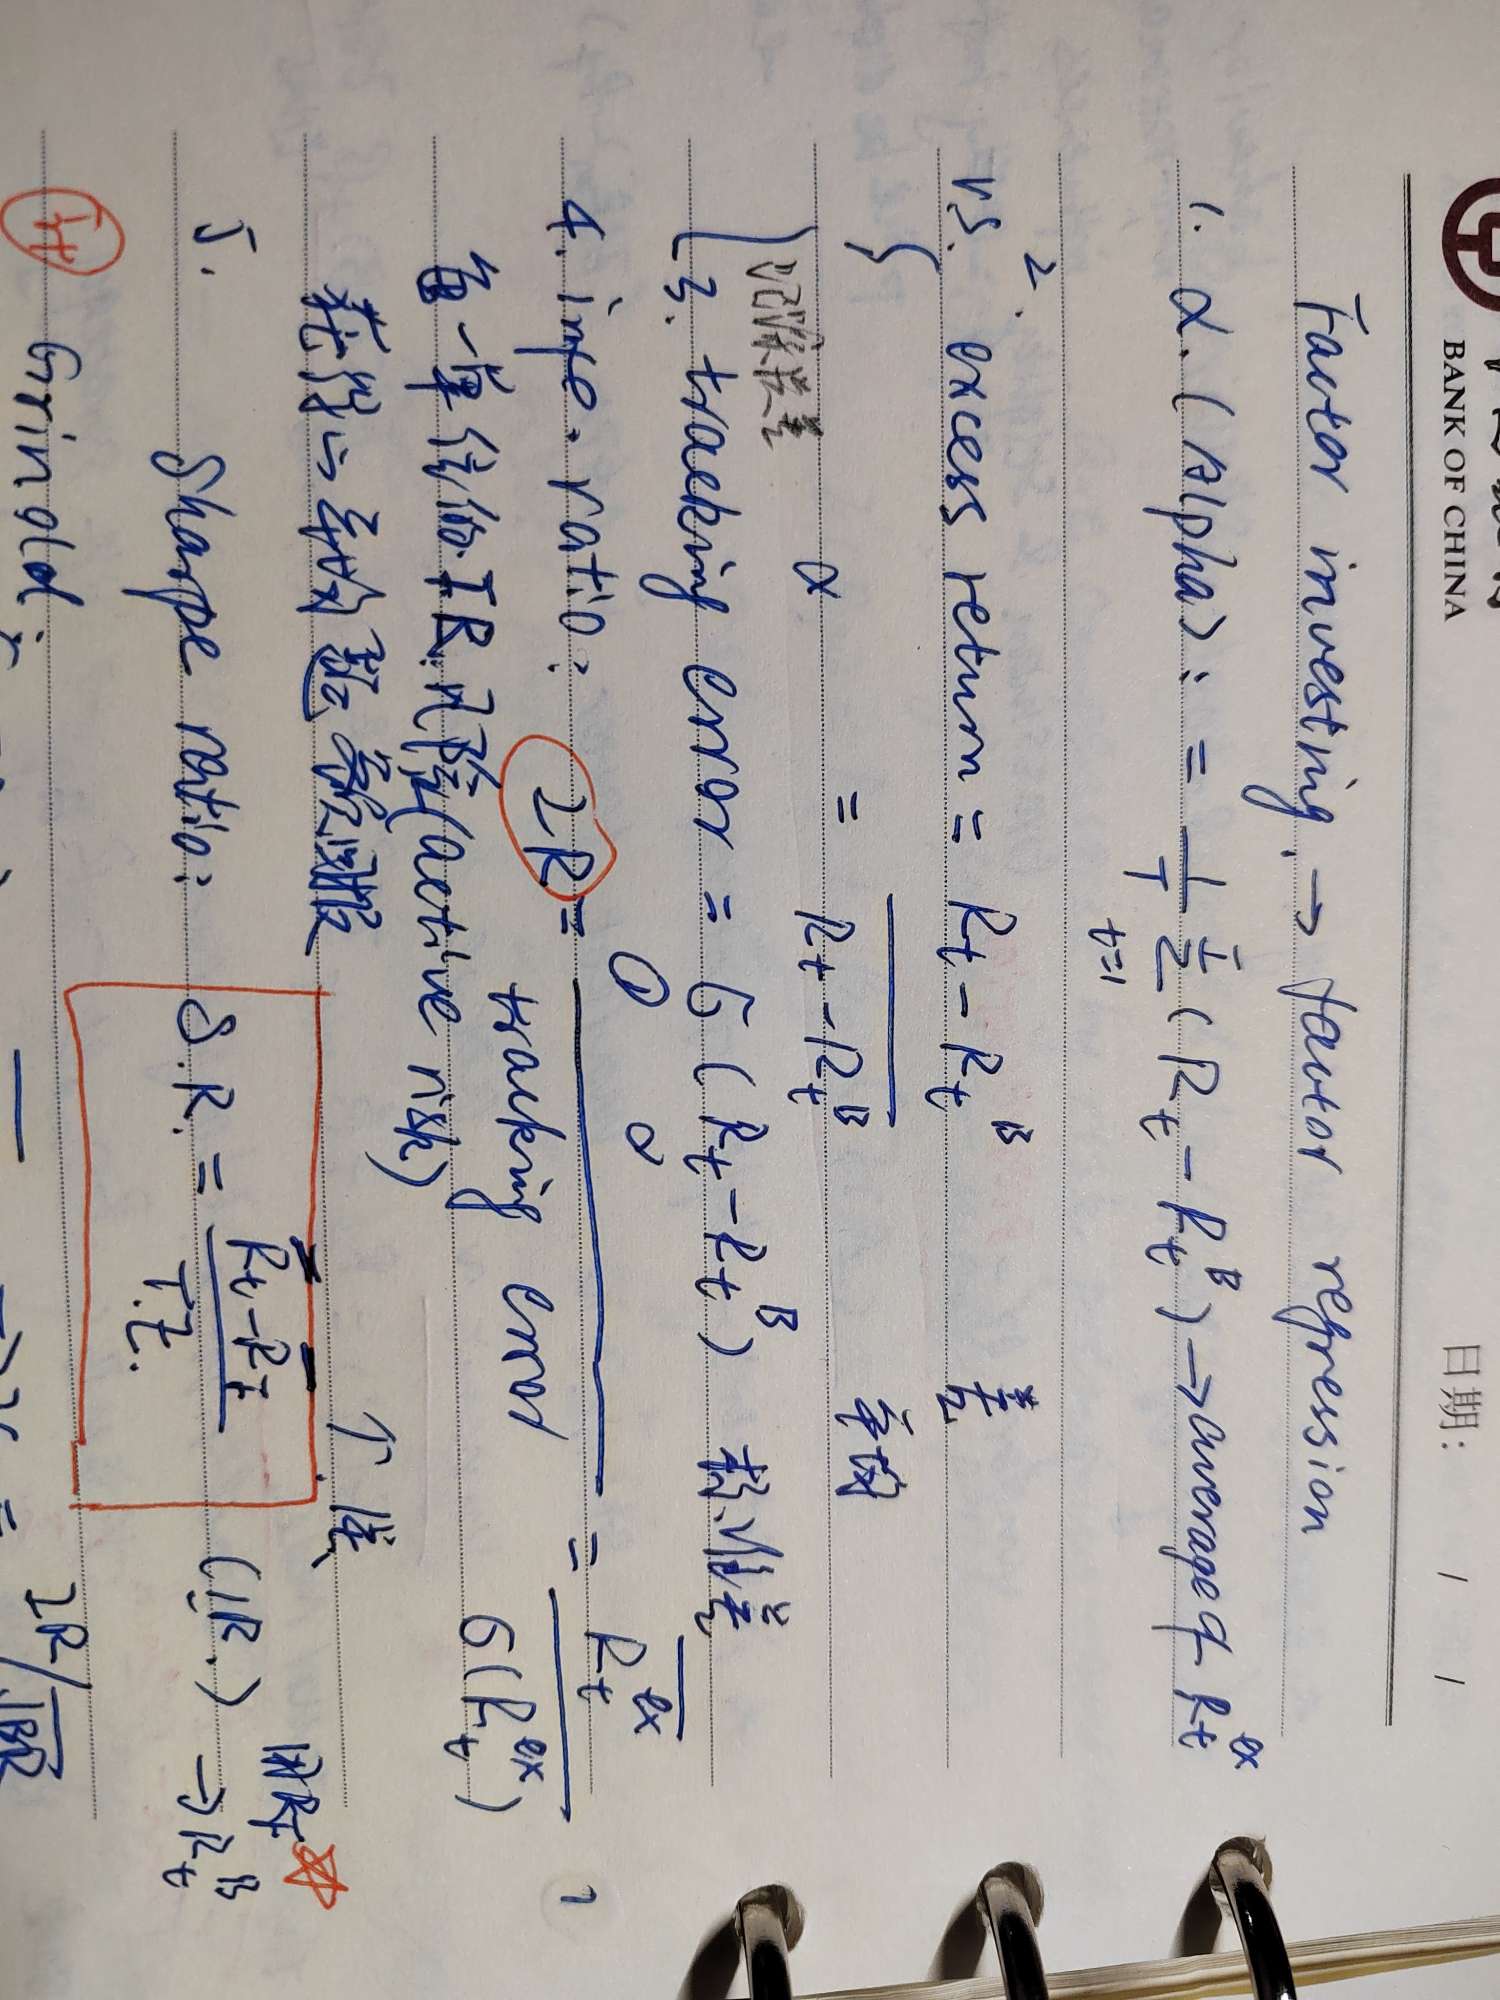 BANK OF CHINA
日期: / /
Factor investing. → factor regression
1. α. (Alpha): = 1/T Σ(Rt - Rt^B) → average of Rt^ex
t=1
2. excess return = Rt - Rt^B 差
v.s.
α = Rt - Rt^B
跟踪误差
3. tracking error = σ(Rt - Rt^B) 标准差
4. info. ratio: IR = α / tracking error = Rt^ex / σ(Rt^ex)
每一单位的IR.风险(active risk)
获得的平均超额回报 个债
5. Sharpe ratio: S.R. = Rt - Rf / T.E. (IR.) → Rt^B
用Rf
Grinold
IR/√BR